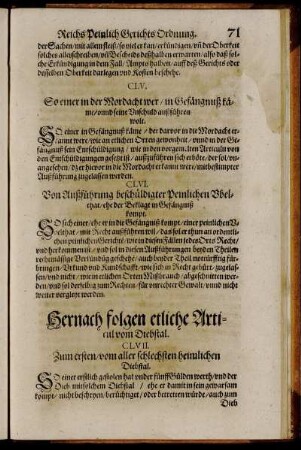 Reichs Peinlich Gerichts Ordnung. 71
der Sachen/ mit allem fleiß/ so viel er kan/ erkündigen/ vñ der Oberkeit
solches alles schreiben/ vñ Bescheyds deßhalben erwarten/ also daß sol-
che Erkündigung in dem Fall/ Ampts halben/ auff deß Gerichts oder
desselben Oberkeit darlegen vnd Kosten beschehe.
CLV.
So einer in der Mordacht wer/ in Gefängnuß kä-
me/ vnnd seine Vnschuld außführen
wolt.
SO einer in Gefängnuß käme/ der darvor in die Mordacht er-
kannt were/ wie an etlichen Orten gewonheit/ vnnd in der Ge-
fängnuß sein Entschüldigung/ wie in den vorgehenden Articuln von
den Entschüldigungen gesetzt ist/ außzuführen sich erböte/ der sol/ vn-
angesehen/ dz er hievor in die Mordacht erkannt were/ mit bestimpter
Außführung zugelassen werden.
CLVI.
Von Außführung beschüldigter Peinlichen Vbel-
that/ ehe der Beklagt in Gefängnuß
kompt.
SO sich einer/ ehe er in die Gefängnuß kompt/ einer peinlichen V-
belthat/ mit Recht außführen wil/ das sol er thun an ordentli-
chen
peinlichen Gerichten/ wie in diesen Fällen jedes Orts Recht/
vnd herkommen ist/ vnd sol in diesen Außführungen beyden Theilen
notürfftig
fär-
derungen/ Vrkund vnd Kundtschafft/ wie sich zu Recht gebürt/ zugelas-
sen vnd nicht/ wie in etlichen Orten Mißbrauch/ abgeschnitten wer-
den/ vnd sol derselbig zum Rechten/ für vnrechter Gewalt/ vnnd nicht
weiter vergleyt werden.
Hernach folgen etliche Arti-
cul vom Diebstal.
CLVII.
Zum ersten/ vom aller schlechsten heimlichen
Diebstal.
SO einer erstlich gestolen hat vnder fünff Gülden werth/ vnd der
Dieb mit solchem Diebstal/ ehe er damit in sein gewarsam
kompt/ nicht beschryen/ berüchtiget/ oder betretten würde/ auch zum
Dieb